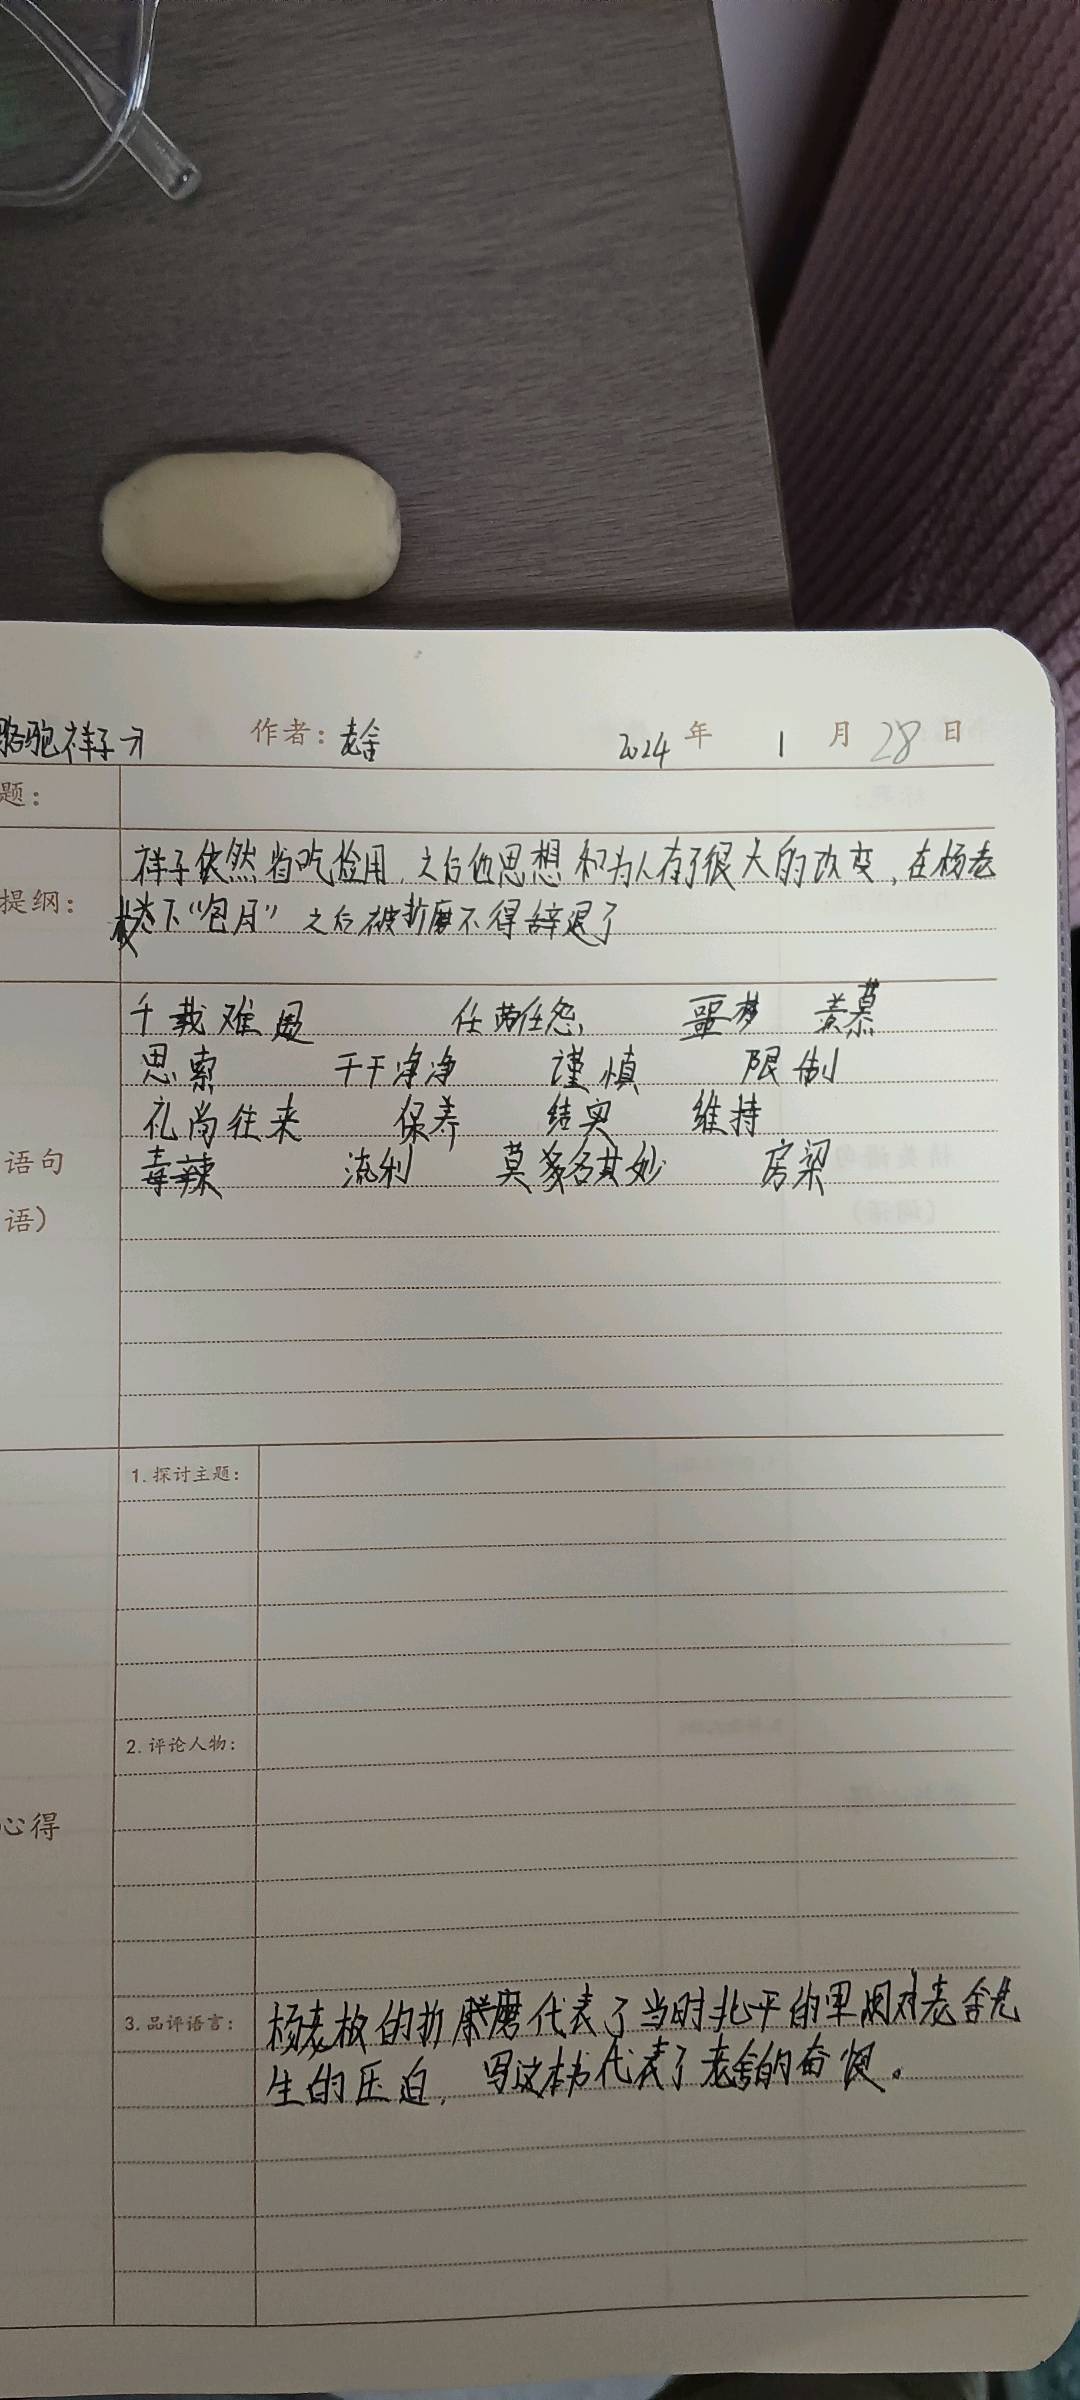 骆驼祥子 作者：老舍 2024 年 1 月 28 日
题：
祥子依然省吃俭用，之后他思想和为人有了很大的改变，在杨老
提纲： 板下“包月”之后被折磨不得辞退了
千载难 任劳任怨、噩梦 羡慕
思索 干干净净 谨慎 限制
礼尚往来 保养 结实 维持
语句 毒辣 流利 莫名其妙 房梁
语）
1. 探讨主题：
2. 评论人物：
心得
3. 品评语言： 杨老板的折磨代表了当时北平的军阀对老舍先
生的压迫，写这本书代表了老舍的奋恨。